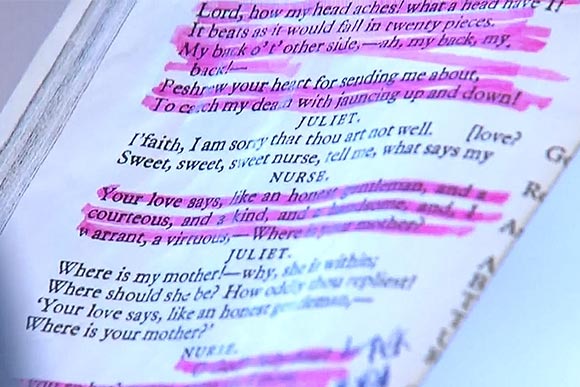 Lord, how my head aches! what a head have I!
It beats as it would fall in twenty pieces.
My back o't' other side,—ah, my back, my
back!—
Beshrew your heart for sending me about,
To catch my death with jauncing up and down!
JULIET.
I'faith, I am sorry that thou art not well. [love?
Sweet, sweet, sweet nurse, tell me, what says my
NURSE.
Your love says, like an honest gentleman, and a
courteous, and a kind, and a handsome, and, I
warrant, a virtuous,—Where is your mother?
JULIET.
Where is my mother!—why, she is within;
Where should she be? How oddly thou repliest!
'Your love says, like an honest gentleman,—
Where is your mother?'
NURSE.